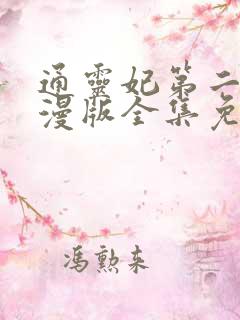 通靈妃第二
漫版全集免
馮勲来